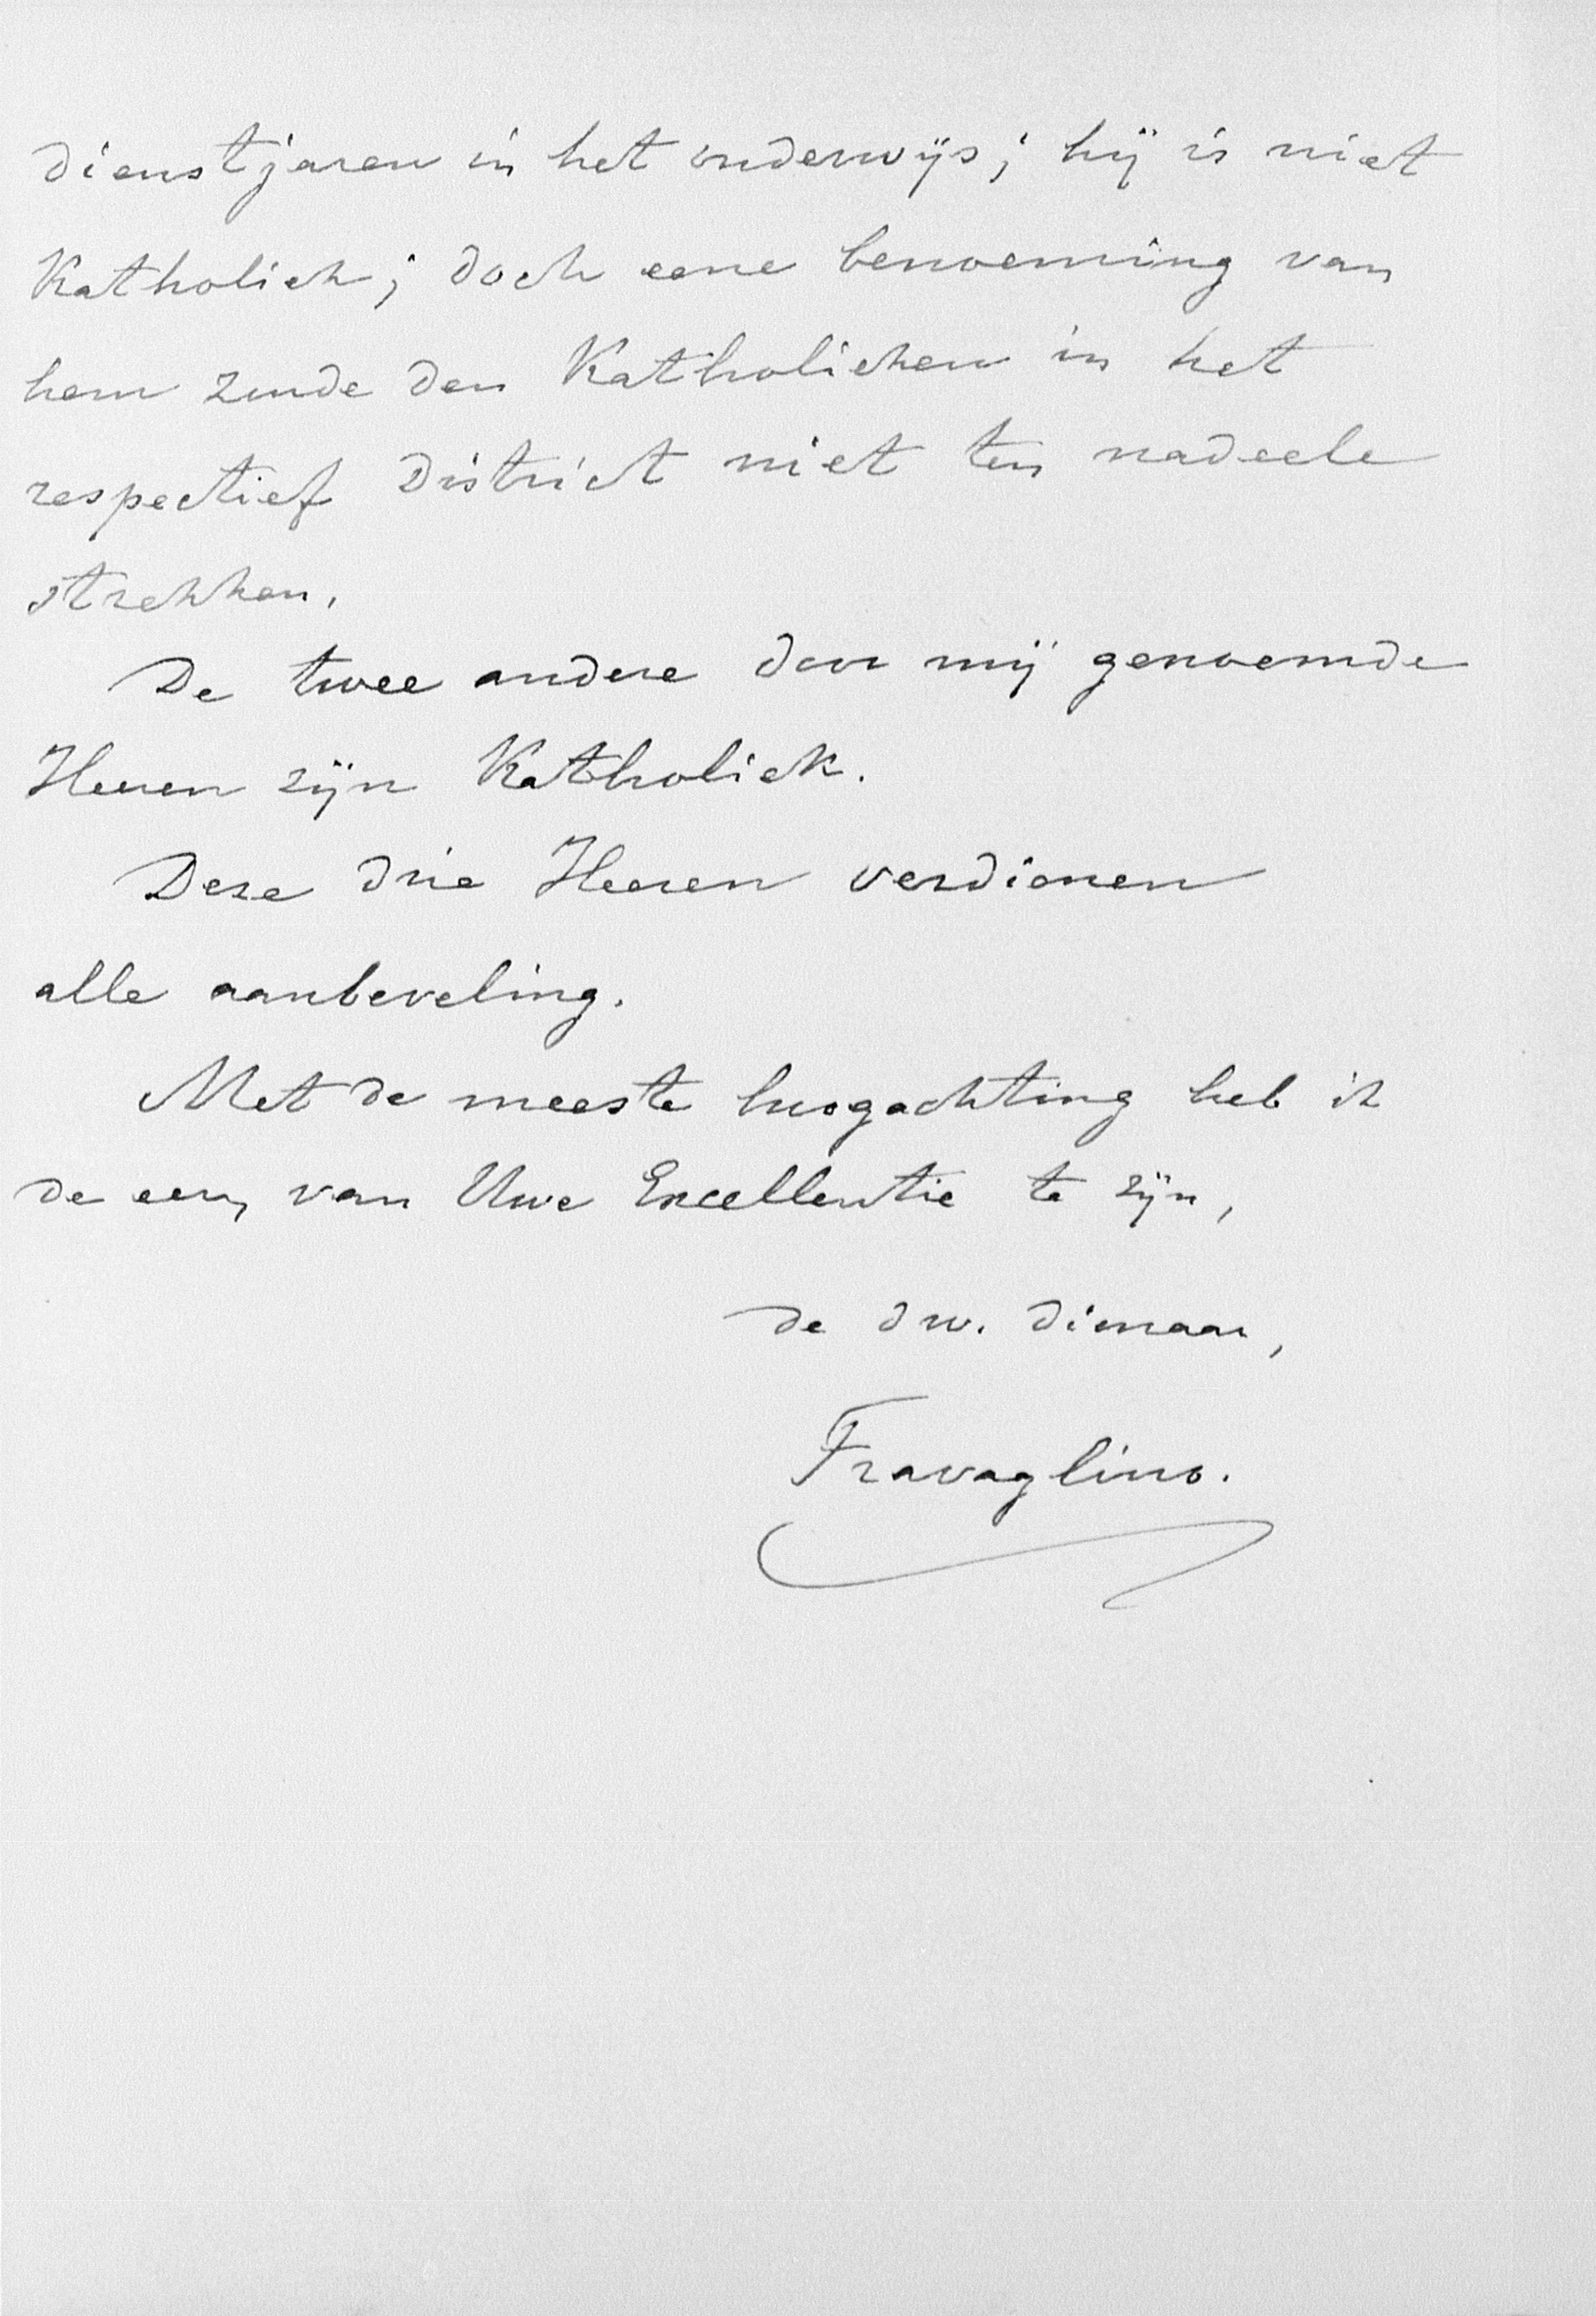 dienstjaren in het onderwijs; hij is niet
Katholiek; doch eene benoeming van
hem zoude den Katholieken in het
respectief District niet ten nadeele
strekken.
De twee andere door mij genoemde
Heeren zijn Katholiek.
Deze drie Heeren verdienen
alle aanbeveling.
Met de meeste hoogachting heb ik
de eer, van Uwe Excellentie te zijn,
de dw. dienaar,
Fravaglino.